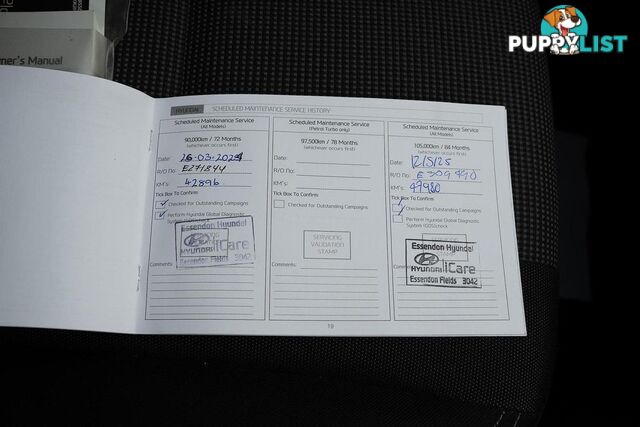 PUPPYLIST
ner's Manual
HYUNDAI SCHEDULED MAINTENANCE SERVICE HISTORY
Scheduled Maintenance Service
(All Models)
90,000km / 72 Months
(whichever occurs first)
Date: 26-03-2024
R/O No: E271844
KM's: 42896
Tick Box To Confirm:
Checked for Outstanding Campaigns
Perform Hyundai Global Diagnostic
System (GDS)check
Essendon Hyundai
HYUNDAI iCare
Essendon Fields 3042
Comments:
Scheduled Maintenance Service
(Petrol Turbo only)
97,500km / 78 Months
(whichever occurs first)
Date:
R/O No:
KM's:
Tick Box To Confirm:
Checked for Outstanding Campaigns
SERVICING
VALIDATION
STAMP
Comments:
Scheduled Maintenance Service
(All Models)
105,000km / 84 Months
(whichever occurs first)
Date: 12/5/25
R/O No: E309490
KM's: 49980
Tick Box To Confirm:
Checked for Outstanding Campaigns
Perform Hyundai Global Diagnostic
System (GDS)check
Essendon Hyundai
HYUNDAI iCare
Essendon Fields 3042
Comments:
19